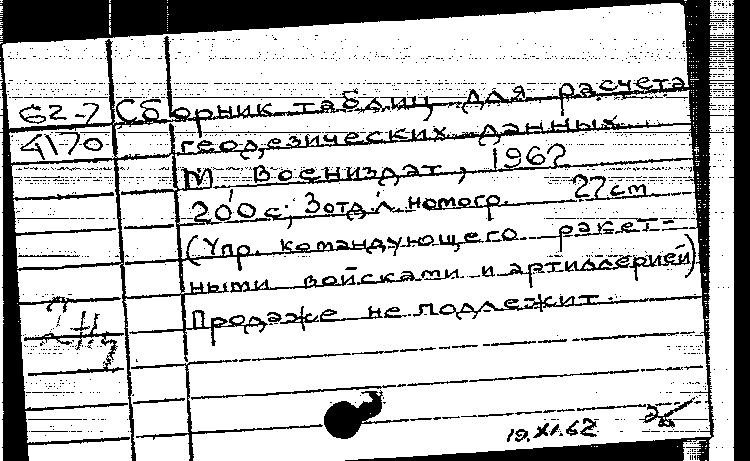 62-7 Сборник таблиц для расчета
4170 геодезических данных
М Воениздат, 1962
200 с; 3 отд. л. номогр. 22 cm
(Упр. командующего ракет-
ными войсками и артиллерией)
Продаже не подлежит.
19.XI.62